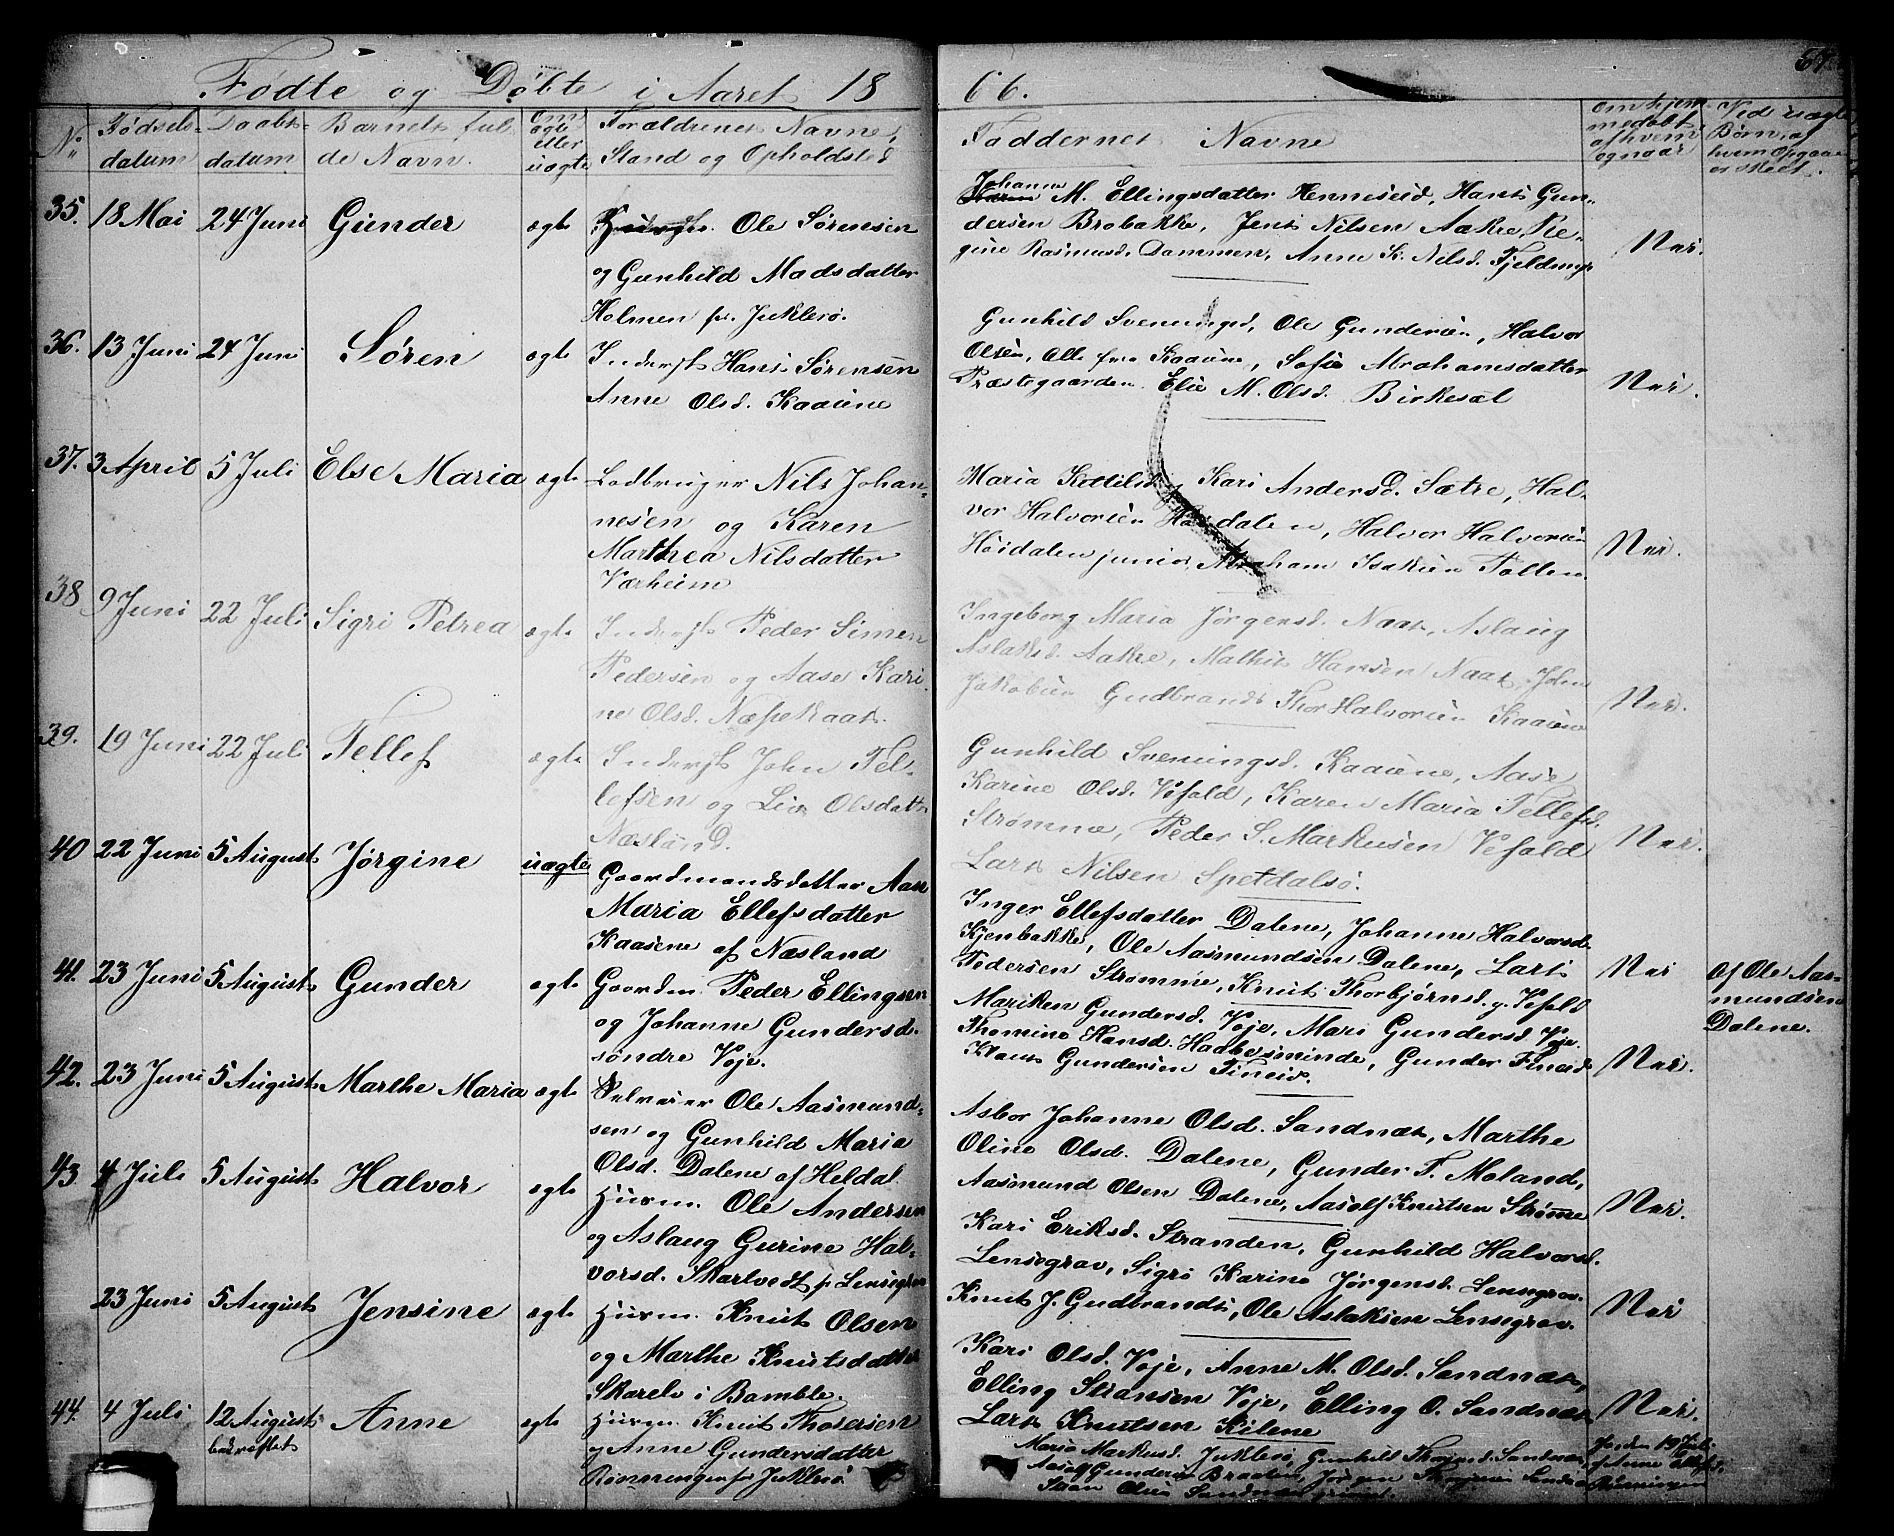 Fødte og Døbte i Aaret 1866.
No Fødsels-datum Daabs-datum Barnets fulde Navn. Om ægte eller uægte Forældrenes Navne, Stand og Opholdsted
Faddernes Navne
Om hjemmedøbt, af hvem og naar
Ved uægte Børn, af hvem Opgaven er skeet.
35. 18 Mai 24 Juni Gunder ægte Ole Sørensen
og Gunhild Madsdatter
Holmen pr. Juklerø.
Johanne M. Ellingsdatter Henneseid, Hans Gun-
dersen Brobakke, Jens Nilsen Aakre, Re-
gine Rasmusd. Dammen, Anne K. Nilsd. Fjeldmyr
Nei.
36. 13 Juni 24 Juni Søren ægte Inderst Hans Sørensen
Anne Olsd. Kaasene
Gunhild Sveningsd, Ole Gundersen, Halvor
Olsen, alle fra Kaasene, Sofie Abrahamsdatter
Præstegaarden. Elie M. Olsd. Birkesal
Nei.
37. 3 April 5 Juli Else Maria ægte Ladbruger Nils Johan-
nesen og Karen
Marthea Nilsdatter
Værheim
Maria Kittilsd, Kari Andersd. Sætre, Hal-
vor Halvorsen Høidalen, Halvor Halvorsen
Høidalen junior, Abraham Isaksen Tollen.
Nei.
38 9 Juni 22 Juli Sigri Petrea ægte Inderst Peder Simen
Pedersen og Aase Kari-
ne Olsd. Næsekaas.
Ingeborg Maria Jørgensd. Naas, Aslaug
Aslaksd. Aakre, Mathis Hansen Naas, John
Jakobsen Gudbrands Thor Halvorsen Kaasene
Nei.
39. 19 Juni 22 Juli Tellef ægte Inderst John Tel-
lefsen og Liv Olsdatter
Næsland.
Gunhild Sveningsd. Kaasene, Aase
Karine Olsd. Vefald, Karen Maria Tellefsd.
Strømnæ, Peder S. Markusen Vefald
Lars Nilsen Spetdalsø.
Nei.
40 22 Juni 5 August Jørgine uægte Gaardmandsdatter Aase
Maria Ellefsdatter
Kaasene af Næsland
Inger Ellefsdatter Dalene, Johanne Halvorsd.
Kjenbakke, Ole Aasmundsen Dalene, Lars
Pedersen Strømme, Knut Thorbjørnsd. g. Vefald
Nei
af Ole Aas-
mundsen
Dalene.
41. 23 Juni 5 August Gunder ægte Gaardm. Peder Ellingsen
og Johanne Gundersd.
søndre Voje.
Mariken Gundersd. Voje, Mari Gundersd Voje.
Thomine Hansd. Hadbersminde, Gunder Fineid
Klaus Gundersen Fineid.
Nei.
42. 23 Juni 5 August Marthe Maria ægte Selveier Ole Aasmund-
sen og Gunhild Maria
Olsd. Dalene af Heldal.
Asbor Johanne Olsd. Sandnæs, Marthe
Oline Olsd. Dalene, Gunder T. Moland,
Aasmund Olsen Dalene, Aasolf Knutsen Strømme
Nei.
43 4 Juli 5 August Halvor ægte Husm. Ole Andersen
og Aslaug Gurine Hal-
vorsd. Skarlvedt p. Lensegrav
Kari Eriksd. Stranden, Gunhild Halvorsd.
Lensegrav, Sigri Karine Jørgensd. Lensegrav.
Knut J. Gudbrands, Ole Aslaksen Lensegrav.
Nei
23 Juni 5 August Jensine ægte Husm. Knut Olsen
og Marthe Knutsdatter
Skarelv i Bamble.
Kari Olsd. Voje, Anne M. Olsd. Sandnæs,
Elling Stiansen Voje, Elling O. Sandnæs
Lars Knutsen Kilene
Nei.
44. 4 Juli 12 August Anne ægte Husm. Knut Thoresen
bekræftet
og Anne Gundersdatter
Rønningen pr Juklerø
Maria Markusd. Juklerø, Gunhild Sandnæs,
Aasolf Gundersen Braaten, Jørgen Sandnæs
Olsen Sandnæs
Jorden 19 Juli
af Anne
Rønningen